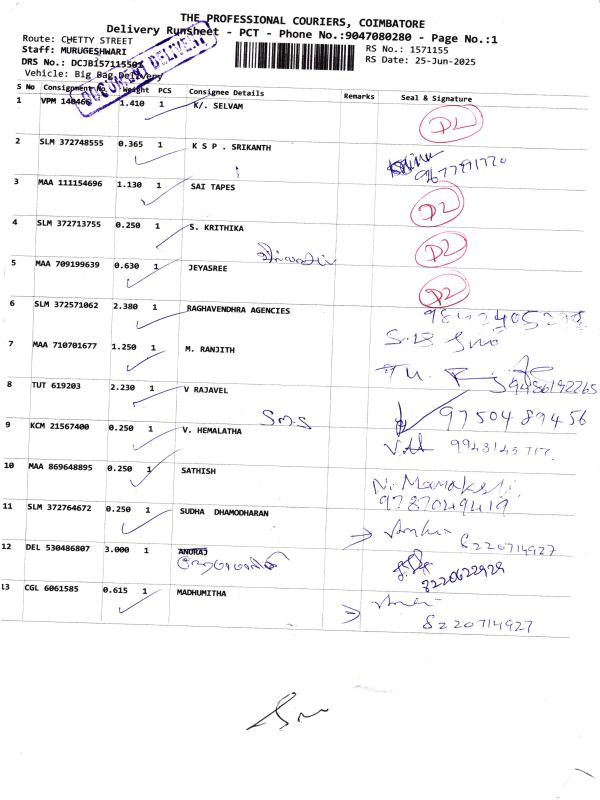 THE PROFESSIONAL COURIERS, COIMBATORE
Delivery Runsheet - PCT - Phone No.:9047080280 - Page No.:1
Route: CHETTY STREET
RS No.: 1571155
Staff: MURUGESHWARI
RS Date: 25-Jun-2025
DRS No.: DCJB1571155501
Vehicle: Big Bag Delivery
DOCUMENT DELIVERY
S No Consignment No. Weight PCS Consignee Details Remarks Seal & Signature
1 VPM 140466 1.410 1 K/. SELVAM DL
2 SLM 372748555 0.365 1 K S P . SRIKANTH
9677791720
3 MAA 111154696 1.130 1 SAI TAPES D2
4 SLM 372713755 0.250 1 S. KRITHIKA D2
5 MAA 709199639 0.630 1 JEYASREE D2
6 SLM 372571062 2.380 1 RAGHAVENDHRA AGENCIES
7 MAA 710701677 1.250 1 M. RANJITH
9486192265
8 TUT 619203 2.230 1 V RAJAVEL 9750489456
9 KCM 21567400 0.250 1 V. HEMALATHA
10 MAA 869648895 0.250 1 SATHISH
9787049419
11 SLM 372764672 0.250 1 SUDHA DHAMODHARAN
8220714927
12 DEL 530486807 3.000 1 ANURAJ
8220622929
13 CGL 6061585 0.615 1 MADHUMITHA
8220714927